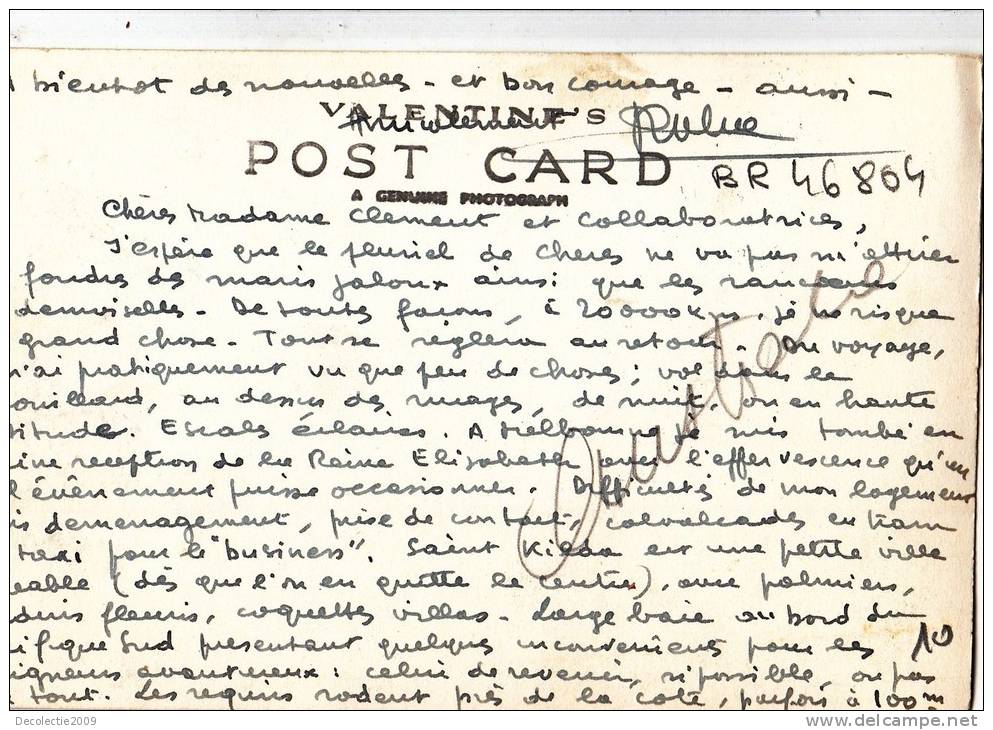 bientot des nouvelles - et bon courage - aussi -
VALENTINE'S
Amicalement
POST CARD
BR 46804
A GENUINE PHOTOGRAPH
Chères Madame Clement et Collaboratrices,
J'espère que le pluriel de Chères ne va pas m'attirer
foudres des maris jaloux ainsi que les rancoeurs
demoiselles - De toutes façons, à 20000 Kms, je ne risque
grand chose - Tout se règlera au retour - Du voyage,
n'ai pratiquement vu que peu de choses; vol dans le
ouillard, au dessus des nuages, de nuit, ou en haute
titude. Escales éclaires. A Melbourne je suis tombé en
ine reception de la Reine Elisabeth avec l'effervescence qu'un
l évênement puisse occasionner. Difficultés de mon logement
is demenagement, prise de contact, calvalcades en tram
taxi pour le "business". Saint Kilda est une petite ville
éable (dès que l'on en quitte le centre), avec palmiers,
duis fleuris, coquettes villas - Large baie au bord du
ifique Sud presentant quelques inconvénients pour les
igneurs avantureux: celui de revenir, si possible, ou pas
tout. Les requins rodent près de la cote, parfois à 100m
Australie
10
Decolectie2009
www.delcampe.net